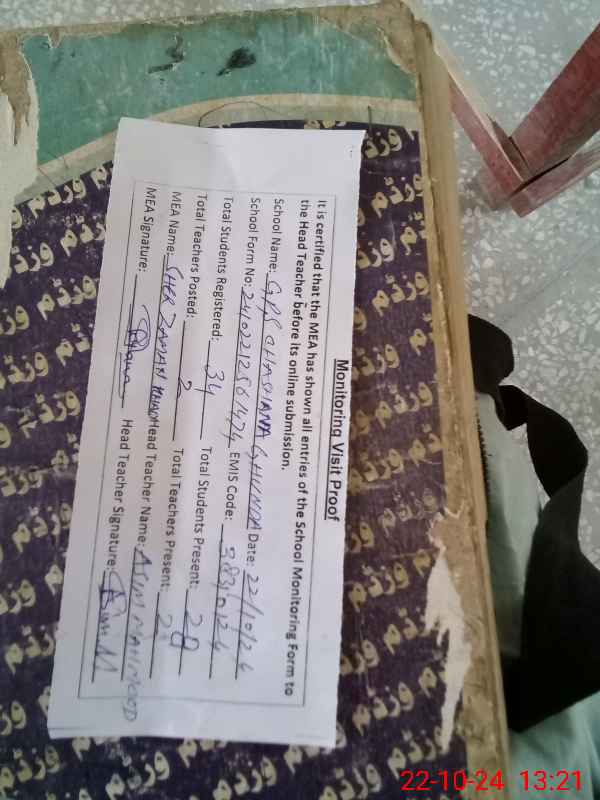 Monitoring Visit Proof
It is certified that the MEA has shown all entries of the School Monitoring Form to
the Head Teacher before its online submission.
School Name: GPS CHASHANA GHUNDA Date: 22/10/24
School Form No: EMIS Code:
Total Students Registered: 34 Total Students Present: 28
Total Teachers Posted: 2 Total Teachers Present: 2
MEA Name: SHER ZAMAN Head Teacher Name: ASIM MAHMOOD
MEA Signature: Head Teacher Signature:
وژدم وژدم وژدم
22-10-24 13:21